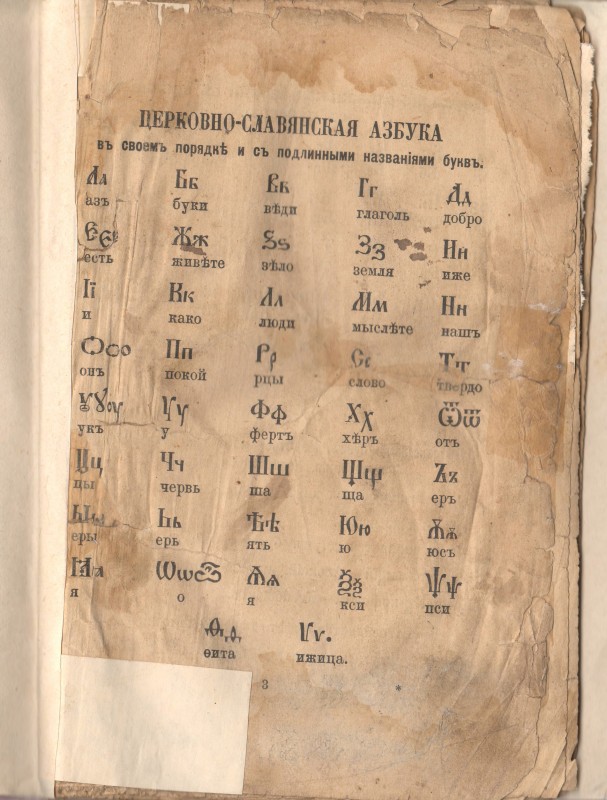 ЦЕРКОВНО-СЛАВЯНСКАЯ АЗБУКА
въ своемъ порядкѣ и съ подлинными названіями буквъ.
Аа Бб Вв Гг Дд
азъ буки вѣди глаголь добро
Єє Жж Ѕѕ Зз Ии
есть живѣте зѣло земля иже
Її Кк Лл Мм Нн
и како люди мыслѣте нашъ
Ѻѻо Пп Рр Сс Тт
онъ покой рцы слово твердо
Ꙋꙋѹ Уу Фф Хх Ѿѿ
укъ у фертъ хѣръ отъ
Цц Чч Шш Щщ Ъъ
цы червь ша ща еръ
Ыы Ьь Ѣѣ Юю Ѫѫ
еры ерь ять ю юсъ
Ꙗꙗ Ѡѡѽ Ѧѧ Ѯѯ Ѱѱ
я о я кси пси
Ѳѳ Ѵѵ.
ѳита ижица.
3 *